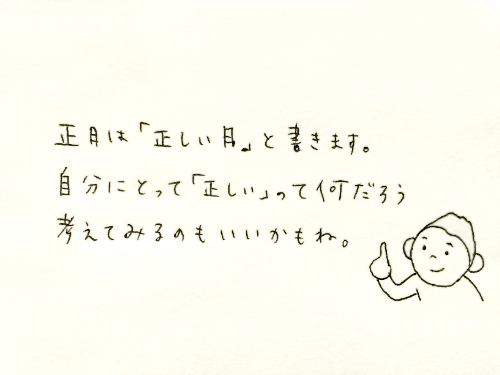 正月は「正しい月」と書きます。
自分にとって「正しい」って何だろう
考えてみるのもいいかもね。